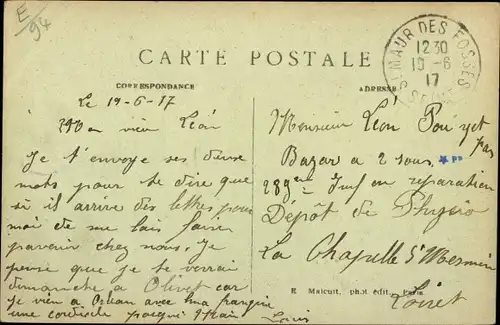 E/94
ST MAUR DES FOSSES
12 30
10-6
17
SEINE
CARTE POSTALE
CORRESPONDANCE
ADRESSE
Le 19-6-17
Mon vieu Léon
Je t'envoye ses deuse
mots pour te dire que
si il arrive des lettres pour
moi de me les faire
parvenir chez nous. Je
pense que je te verrai
dimanche a Olivet car
je vien a Orlean avec ma
une cordiale poigné Main
Louis
Monsieur Léon
Bazar a 2 sous
289eme Inf en reparation
Dépôt de Physio
La Chapelle St Mesmin
Loiret
E Malcuit, phot édit., Paris